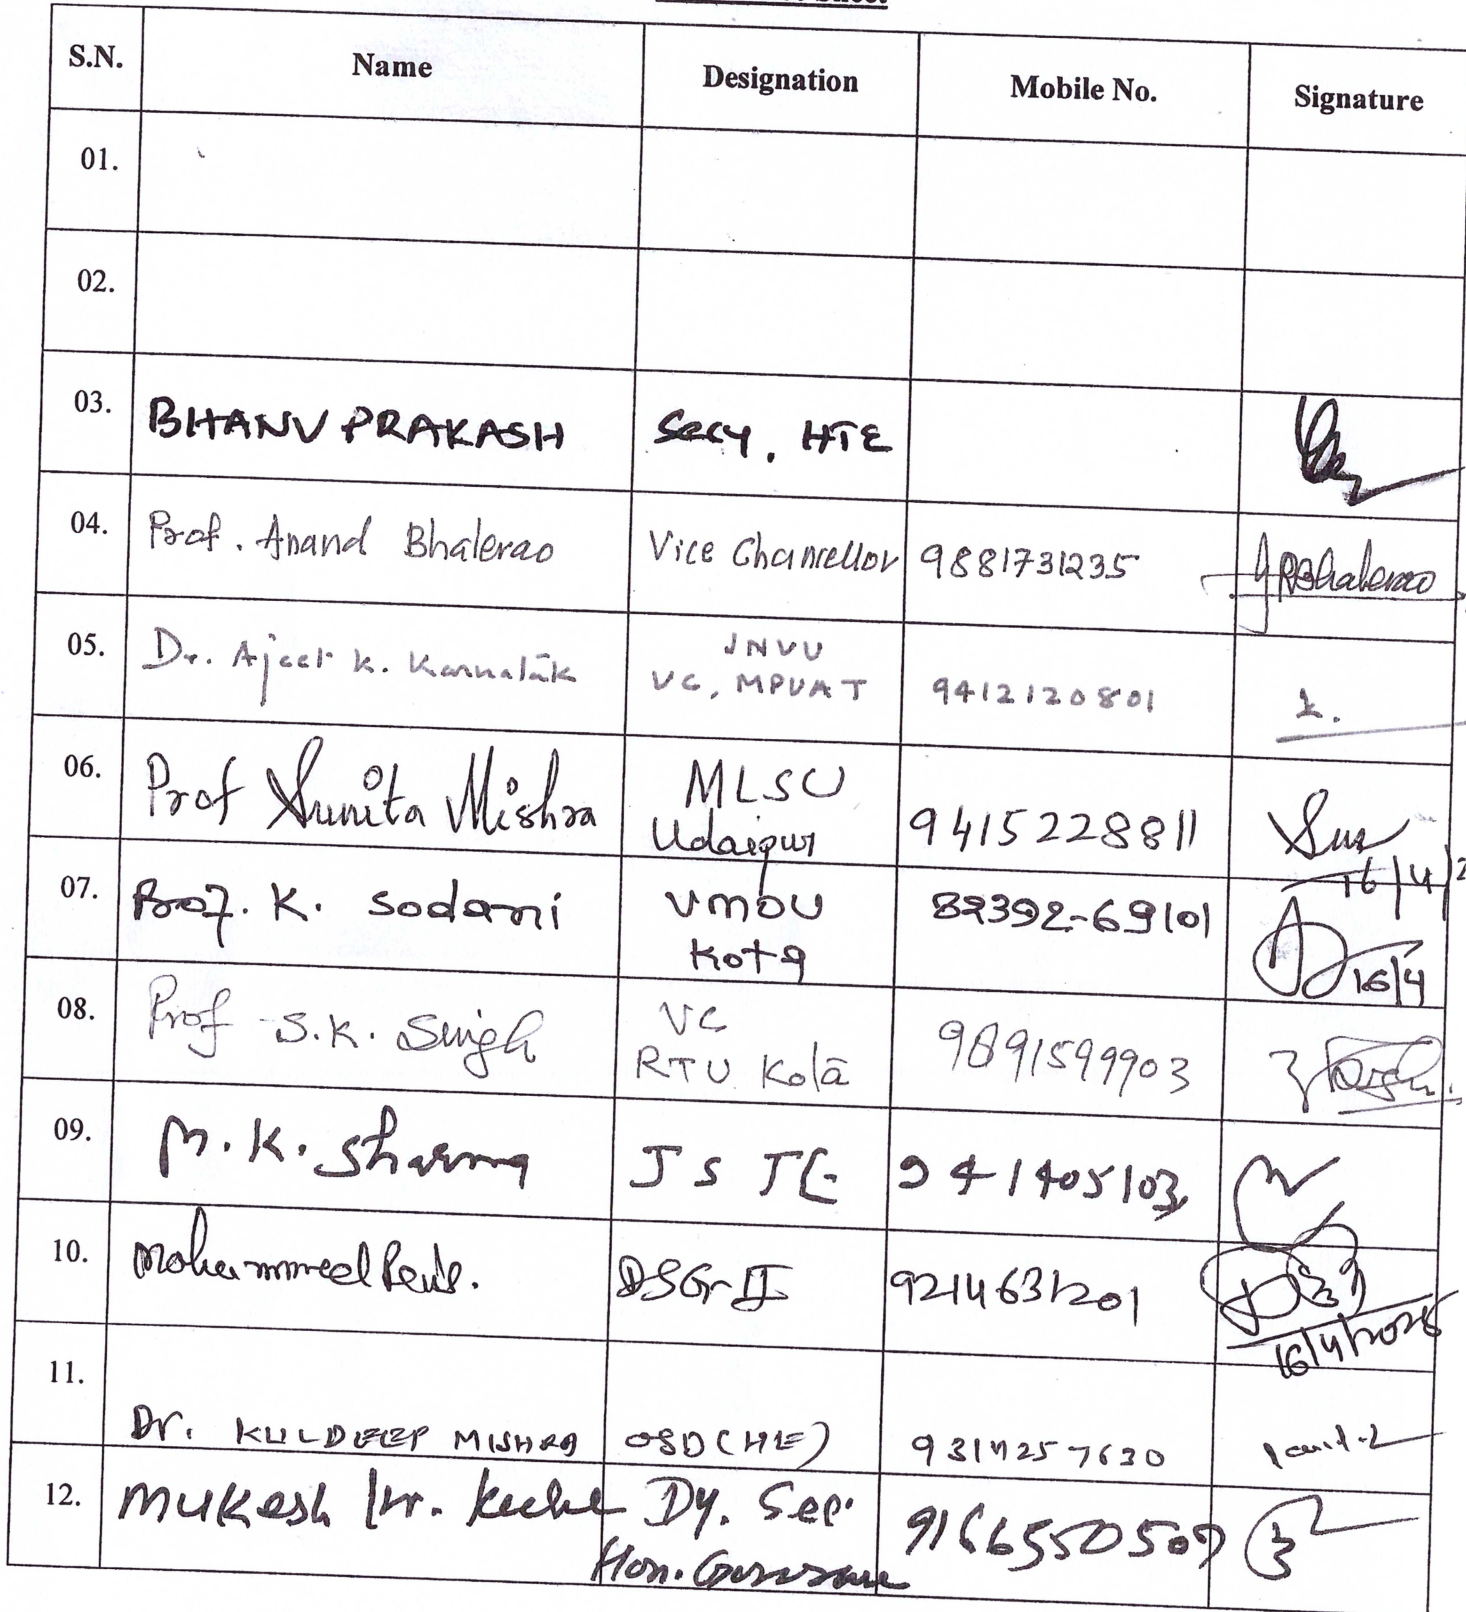 Sheet
S.N. Name Designation Mobile No. Signature
01.
02.
03. BHANU PRAKASH Secy, HTE
04. Prof. Anand Bhalerao Vice Chancellor 9881731235 Bhalerao
05. Dr. Ajeet K. Karnatak JNVU
VC, MPUAT 9412120801
06. Prof Sunita Mishra MLSU
Udaipur 9415228811 Sun
16/4/2
07. Prof. K. Sodani VMOU
Kota 82392-69101
16/4
08. Prof S.K. Singh VC
RTU Kota 9891599903
09. M.K. Sharma JS TE 941405103
10. Mohammed DSG-II 9214631201
16/4/2025
11. Dr. KULDEEP MISHRA OSD (HE) 9317257630
12. Mukesh Kr. Dy. Sec. 9166550509
Hon.